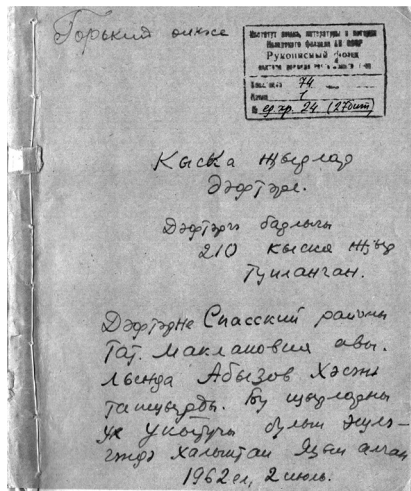 Горький өлкәсе
Институт языка, литературы и истории
Казанского филиала АН СССР
Рукописный фонд
74
1
№ ед. хр. 24 (270 бит)
Кыска җырлар
дәфтәре.
Дәфтәргә барлыгы
210 кыска җыр
тупланган.
Дәфтәрне Спасский районы
Тат. Маклаковия авы-
лында Абызов Хәсән
тапшырды. Бу җырларны
ул укытучы булып эшлә-
гәндә халыктан язып алган
1962 ел, 2 июль.